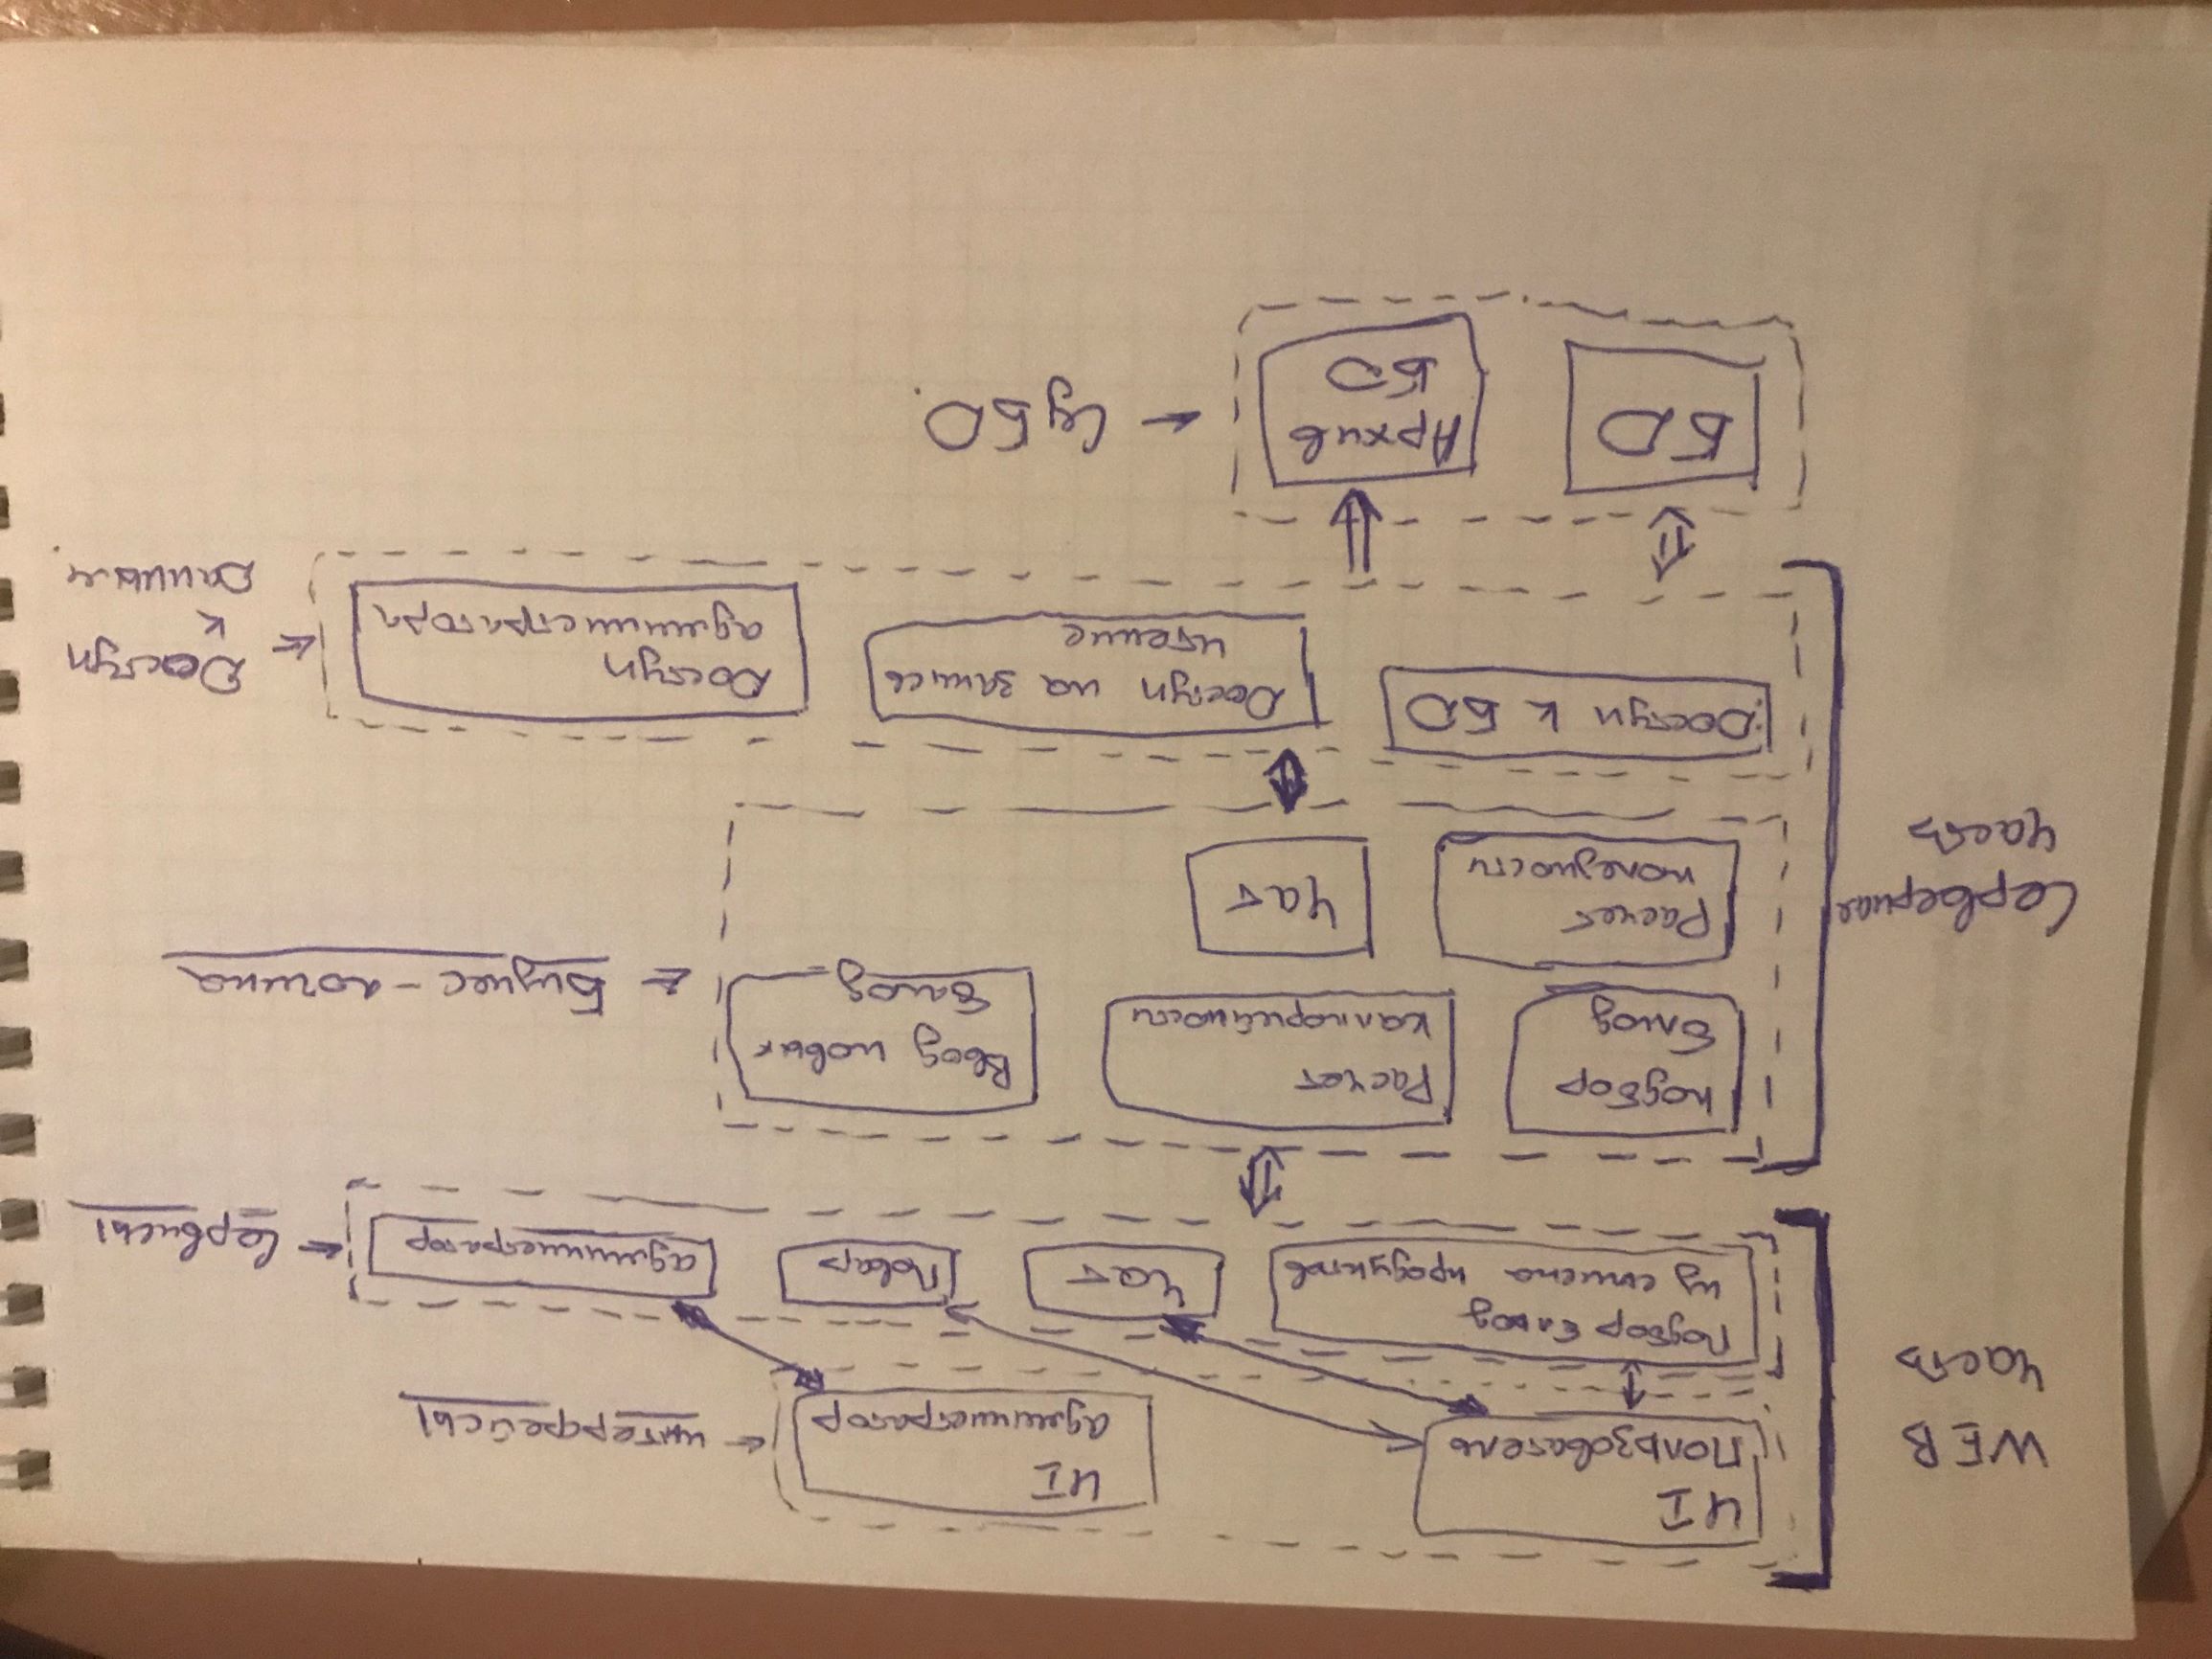 WEB
часть
UI
Пользователь
UI
администратор
← интерфейсы
Подбор блюд
из списка продуктов
Чат
Повар
администратор
← Сервисы
Серверная
часть
подбор
блюд
Расчет
каллорийности
Ввод новых
блюд
← Бизнес-логика
Расчет
полезности
Чат
Доступ к БД
Доступ на запись
чтение
Доступ
администратора
← Доступ
к
Данным.
БД
Архив
БД
← СуБД.